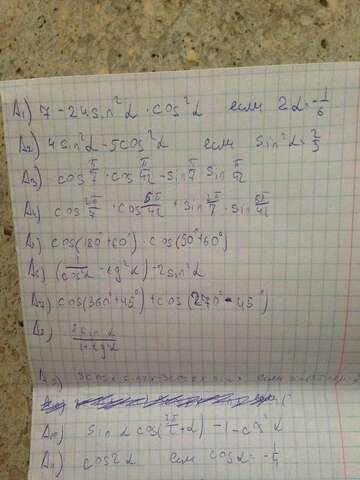 A1) 7 - 24sin²α · cos²α если 2α = -1/6
A2) 4sin²α - 5cos²α если sin²α = 2/5
A3) cos π/7 · cos π/42 - sin π/7 sin π/42
A4) cos 2π/7 · cos 5π/42 + sin 2π/7 · sin 5π/42
cos(180°+60°) · cos(90°+60°)
A6) (1/cos²α - tg²α) - 2sin²α
A7) cos(360°+45°) + cos(270° - 45°)
2sinα
A10) sinα cos(3π/2+α) - 1 - cos²α
A11) cos2α если cosα = -1/4